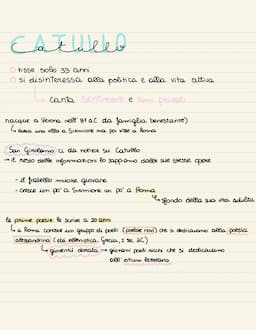 CATULLO
Catullo
visse solo 33 anni
si disinteressa alla politica e alla vita attiva
↳ canta sentimenti e temi privati
nacque a Verona nell' 84 aC da famiglia benestante)
↳ aveva una villa a Sirmione ma poi visse a Roma
San Girolamo ci da notizie su Catullo
→ il resto delle informazioni lo sappiamo dalle sue stesse opere
- il fratello muore giovane
- cresce un po' a Sirmione un po' a Roma
↳ sfondo della sua vita adulta
le prime poesie le scrive a 20 anni
↳ a Roma conosce un gruppo di poeti (poetae novi) che si dedicavano alla poesia
alessandrina (età ellenistica, Grecia, I sec. aC)
↳ gioventù dorata → giovani poeti ricchi che si dedicavano
all' otium letterario